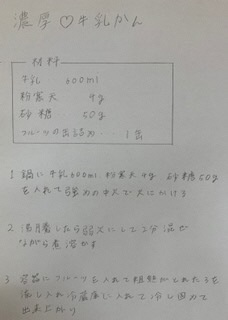 濃厚♡牛乳かん
材料
牛乳‥600ml
粉寒天 4g
砂糖‥50g
フルーツの缶詰め‥1缶
1 鍋に牛乳600ml、粉寒天4g、砂糖50g
を入れて強めの中火で火にかける
2 沸騰したら弱火にして2分混ぜ
ながら煮溶かす
3 容器にフルーツを入れて粗熱がとれた2を
流し入れ冷蔵庫に入れて冷し固めて
出来上がり